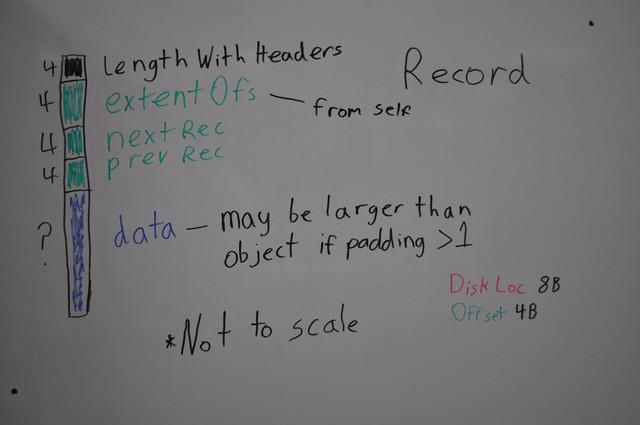 Record
4 Length With Headers
4 extentOfs — from self
4 nextRec
4 prev Rec
? data — may be larger than
object if padding >1
Disk Loc 8B
Offset 4B
*Not to scale